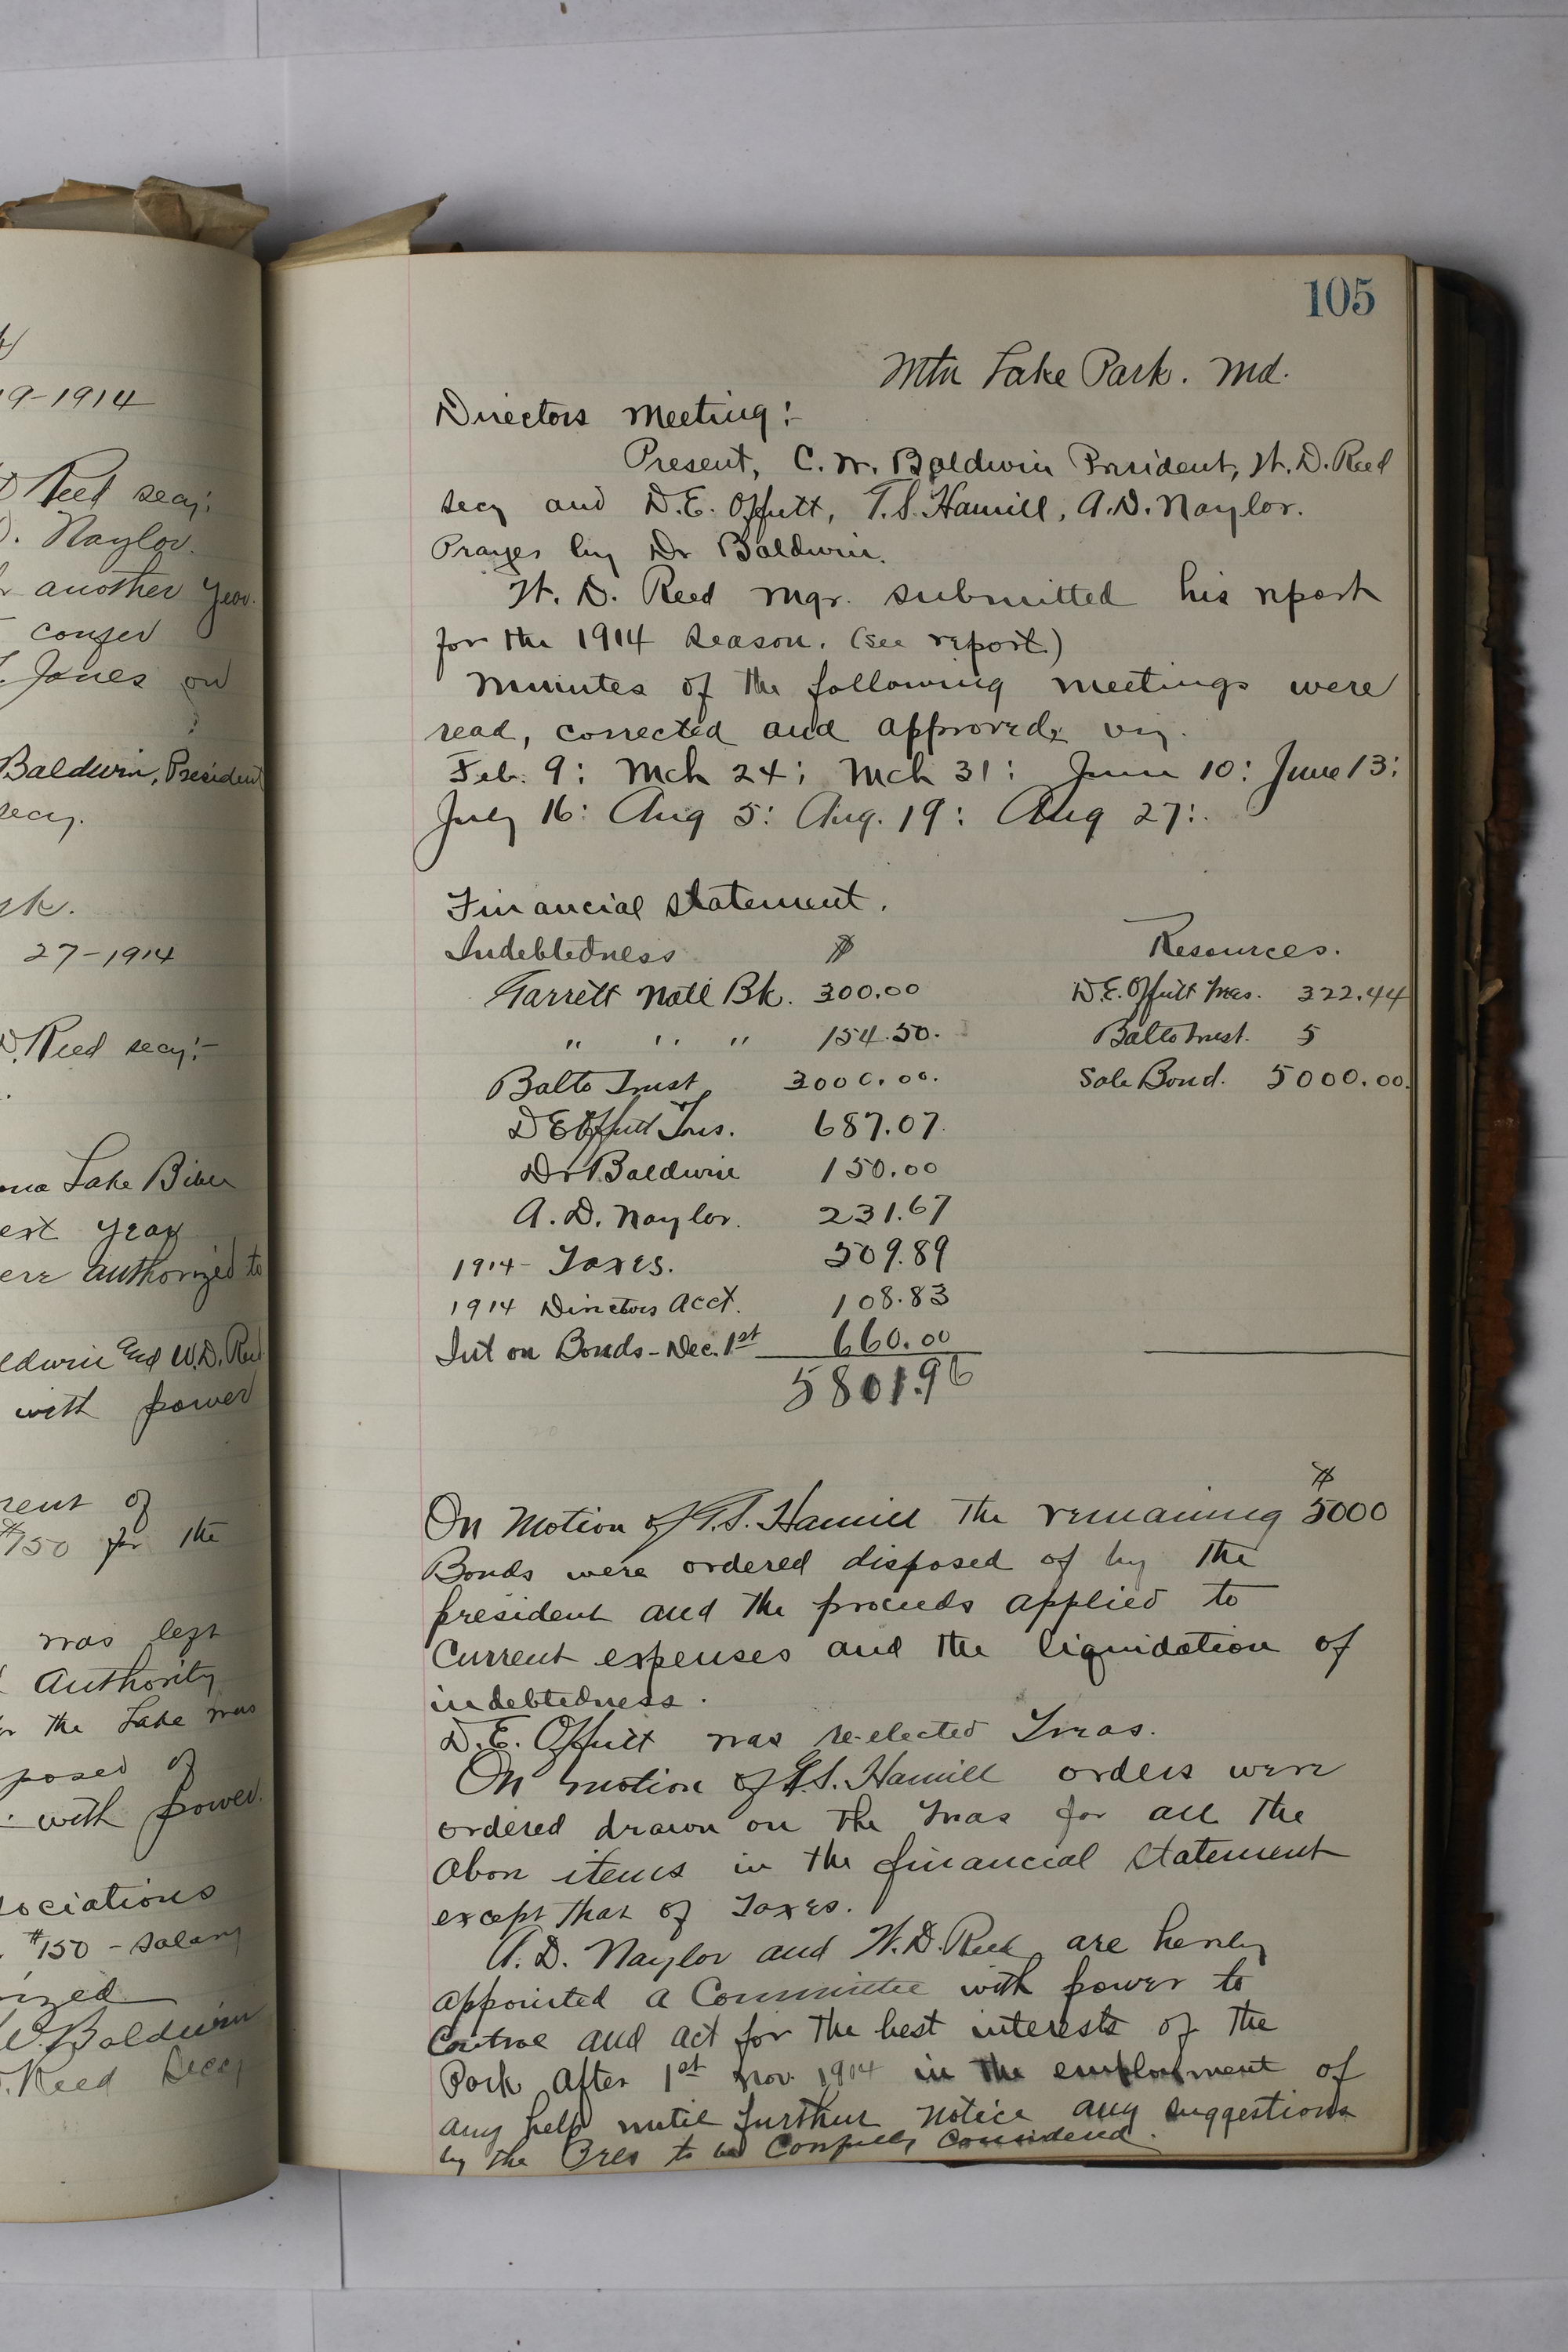 9-1914
Reed secy:
Naylor.
another Year.
confer
Jones on
Baldwin, President
secy.
27-1914
D. Reed secy:-
Lake
est year
authorized to
and W.D. Reed
with power
of
$150 for the
was left
Authority
the Lake was
posed of
with power.
sociations
$150 - Salary
Baldwin
Reed Secy
105
Mtn Lake Park. Md.
Directors Meeting:-
Present, C.W. Baldwin President, W.D. Reed
secy and D.E. Offutt, T.S. Hamill, A.D. Naylor.
Prayer by Dr Baldwin.
W. D. Reed Mgr. submitted his report
for the 1914 season. (see report.)
Minutes of the following meetings were
read, corrected and approved, viz.
Feb. 9: Mch 24: Mch 31: June 10: June 13:
July 16: Aug 5: Aug. 19: Aug 27:
Financial Statement.
Indebtedness $ Resources.
Garrett Natl Bk. 300.00 D.E. Offutt Treas. 322.44
" " " 154.50. Balto Trust. 5
Balto Trust 3000.00. Sale Bond. 5000.00.
D E Offutt Trus. 687.07.
Dr Baldwin 150.00
A. D. Naylor. 231.67
1914- Taxes. 509.89
1914 Directors Acct. 108.83
Int on Bonds - Dec. 1st 660.00
5801.96
$
On Motion of T.S. Hamill the remaining 5000
Bonds were ordered disposed of by the
president and the proceeds applied to
Current expenses and the liquidation of
indebtedness.
D.E. Offutt was re-elected Treas.
On motion of T.S. Hamill orders were
ordered drawn on the Treas for all the
above items in the financial statement
except that of Taxes.
A. D. Naylor and W.D. Reed are hereby
appointed a Committee with power to
Control and act for the best interests of the
Park after 1st Nov. 1914 in the employment of
any help until further notice any suggestions
by the Pres to be Carefully Considered.